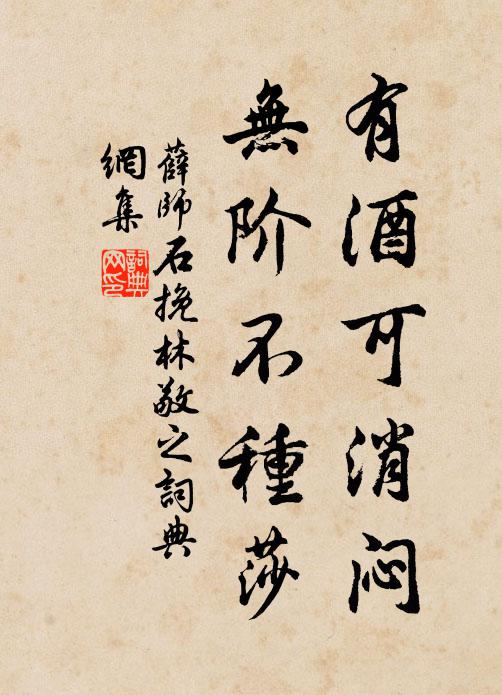 有酒可消闷
無阶不種莎
薛師石挽林敬之詞典
網集
詞典
网印